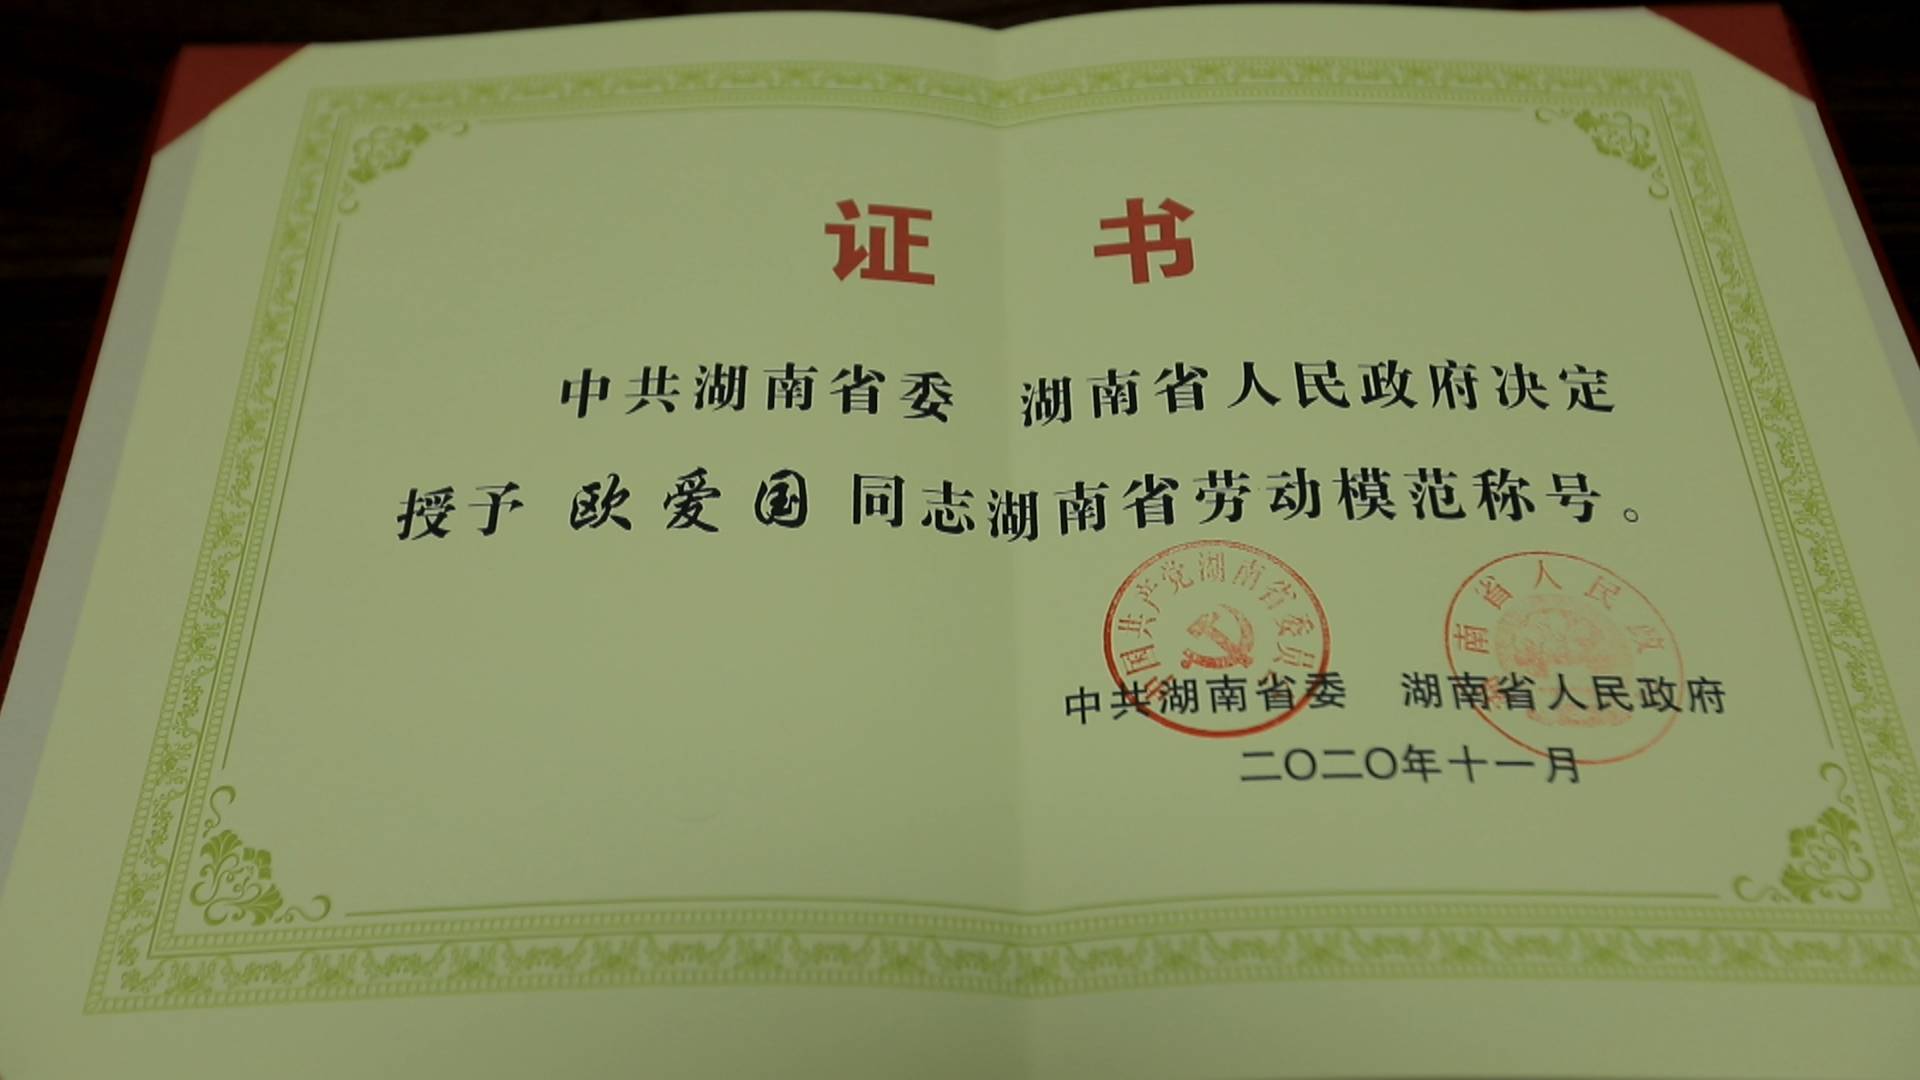 证 书
中共湖南省委 湖南省人民政府决定
授予 欧爱国 同志湖南省劳动模范称号。
中国共产党湖南省委员会
湖南省人民政府
中共湖南省委 湖南省人民政府
二〇二〇年十一月